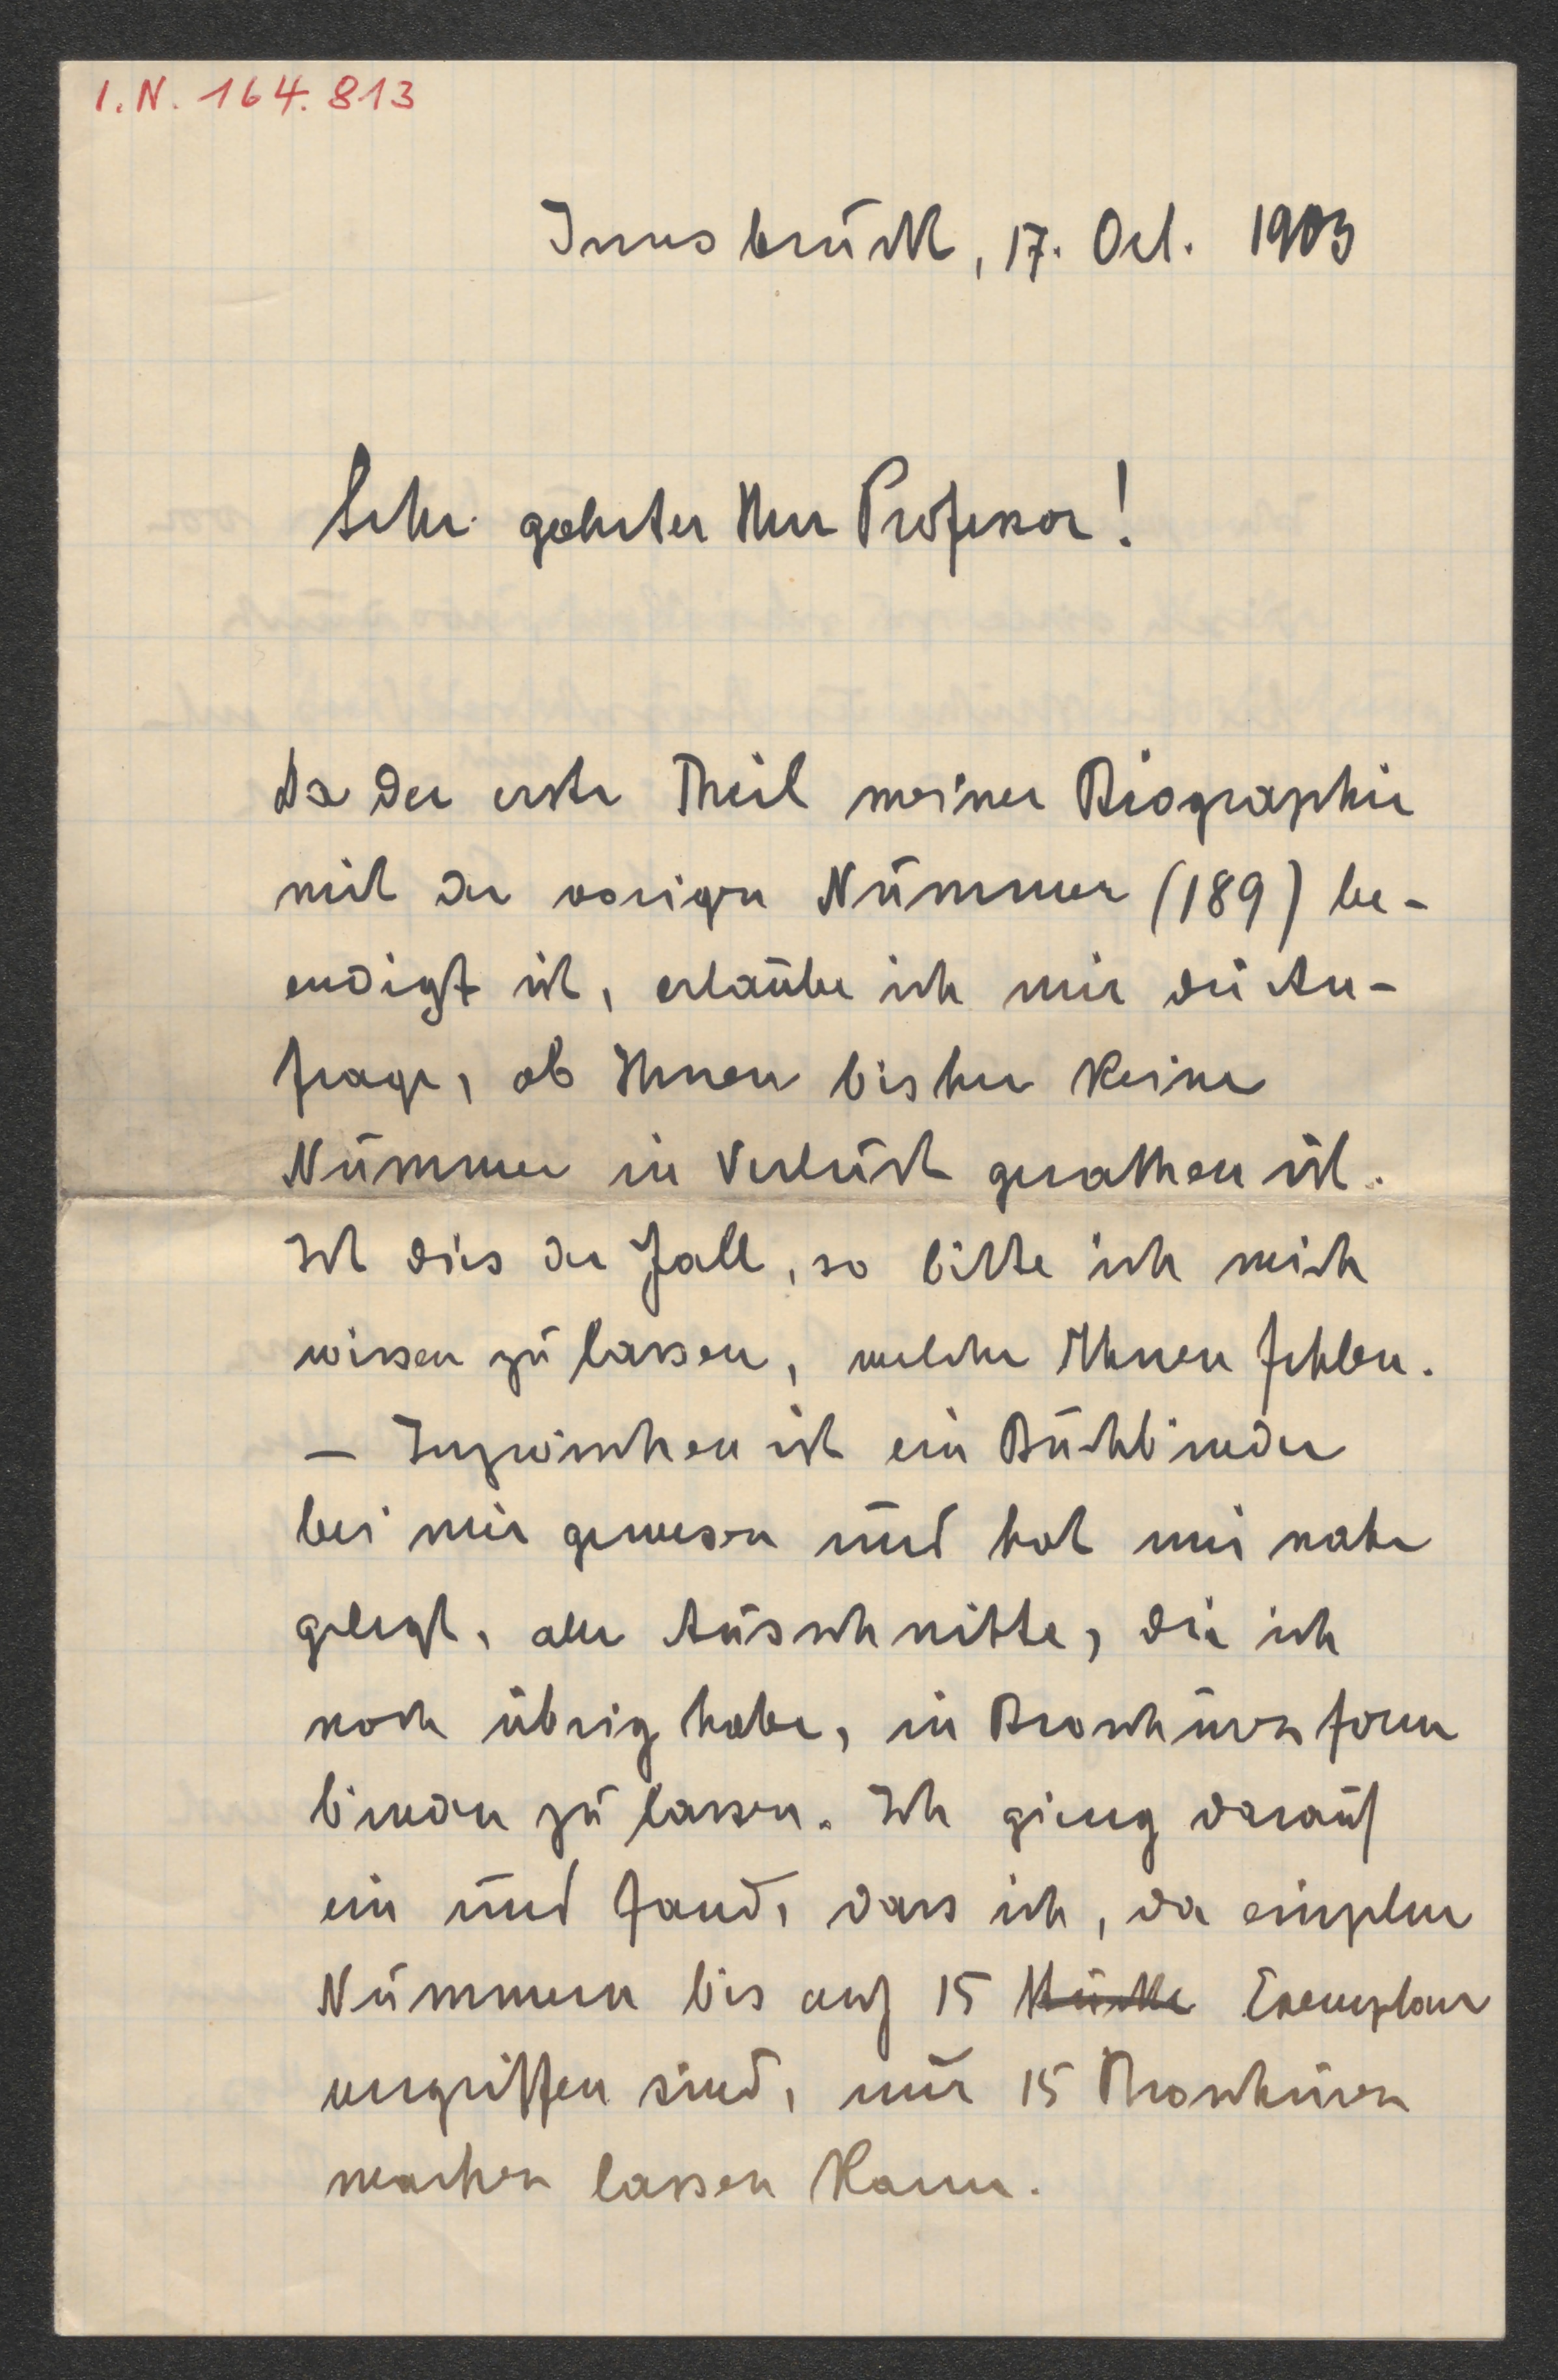 I.N. 164.813
Innsbruck, 17. Oct. 1903
Sehr geehrter Herr Professor!
Da der erste Theil meiner Biographie
mit der vorigen Nummer (189) be-
endigt ist, erlaube ich mir die An-
frage, ob Ihnen bisher keine
Nummer in Verlust gerathen ist.
Ist dies der Fall, so bitte ich mich
wissen zu lassen, welche Ihnen fehlen.
– Inzwischen ist ein Buchbinder
bei mir gewesen und hat mir nahe
gelegt, alle Ausschnitte, die ich
noch übrig habe, in Broschürenform
binden zu lassen. Ich gieng darauf
ein und fand, dass ich, da einzelne
Nummern bis auf 15 Stücke Exemplare
vergriffen sind, nur 15 Broschüren
machen lassen kann.